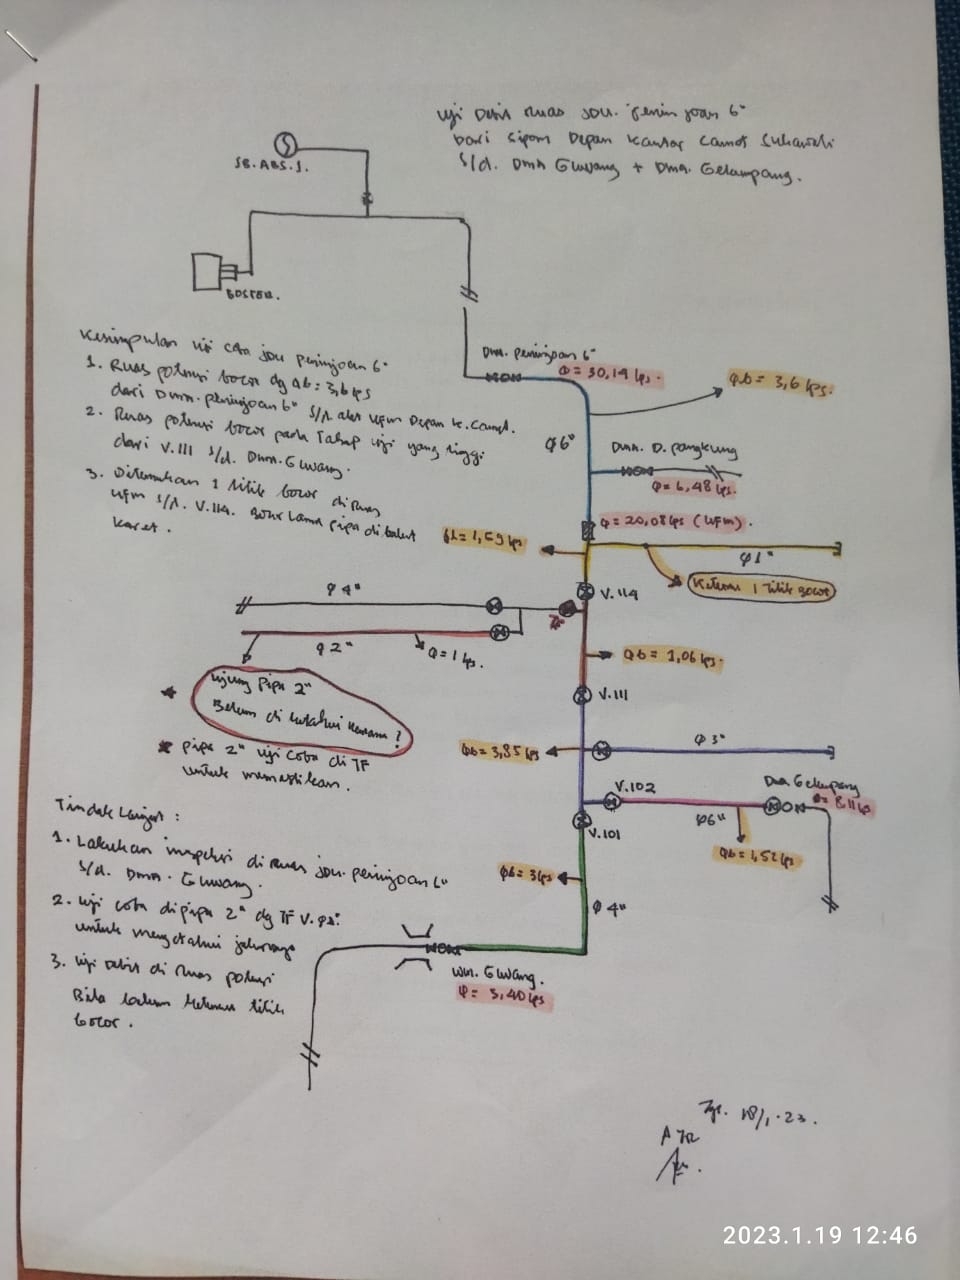 Uji Debit Ruas JDU. Peninjoan 6"
Dari Sipom Depan Kantor Camat Sukawati
S/d. DMA Guwang + DMA. Gelumpang.
SB. ABS. 1.
BOSTER.
DMA. Peninjoan 6"
Q = 30,14 lps.
Qb = 3,6 lps.
Kesimpulan Uji Coba JDU Peninjoan 6"
1. Ruas potensi bocor dg Qb = 3,6 lps
dari DMA. Peninjoan 6" S/d. alat UFM Depan K. Camat.
2. Ruas potensi bocor pada Tahap Uji yang tinggi
dari V.111 S/d. DMA. Guwang.
3. Ditemukan 1 titik bocor di Ruas
UFM S/d. V.114. Pipa dibalut
karet.
φ6"
DMA. D. Pangkung
Q = 6,48 lps.
Q = 20,08 lps (UFM).
Qb = 1,59 lps
φ1"
Ketemu 1 Titik Bocor
φ4"
V.114
φ2"
Q = 1 lps.
Qb = 1,06 lps.
Ujung Pipa 2"
Belum di ketahui kemana?
V.111
* pipa 2" uji coba di TF
untuk memastikan.
Qb = 3,85 lps
φ3"
V.102
DMA. Gelumpang
Q = 8,11 lps
φ6"
V.101
Qb = 1,52 lps
Tindak Lanjut :
1. Lakukan inspeksi di Ruas JDU. Peninjoan 6"
S/d. DMA. Guwang.
Qb = 3 lps
φ4"
2. Uji coba dipipa 2" dg TF
untuk mengetahui jalurnya
3. Uji debit di Ruas potensi
Bila belum ketemu titik
bocor.
WM. Guwang.
Q = 3,40 lps
Tgl. 18/1.23.
2023.1.19 12:46